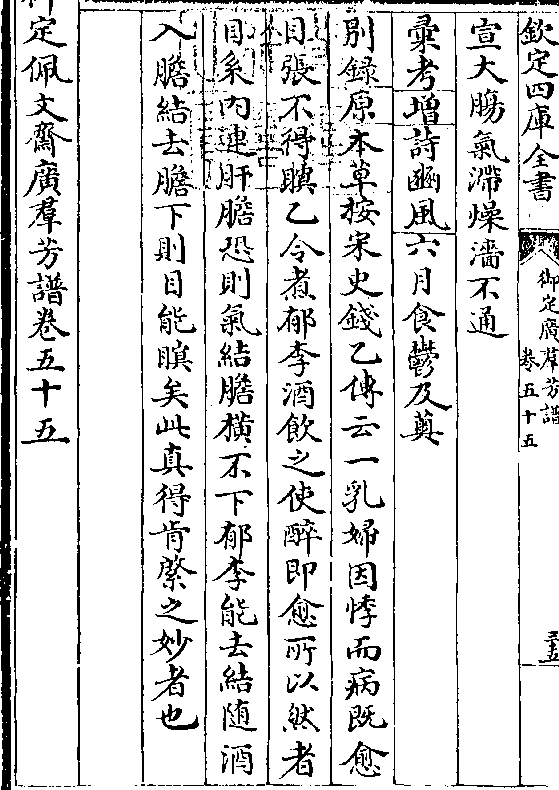 欽定四庫全書
御定廣羣芳譜
卷五十五
三五
宣大腸氣滯燥濇不通
彚考增詩豳風六月食鬱及薁
别録原本草按宋史錢乙傳云一乳婦因悸而病既愈
目張不得瞑乙令煮郁李酒飲之使醉即愈所以然者
目系内連肝膽恐則氣結膽橫不下郁李能去結随酒
入膽結去膽下則目能瞑矣此真得肯綮之妙者也
定佩文齋廣羣芳譜卷五十五